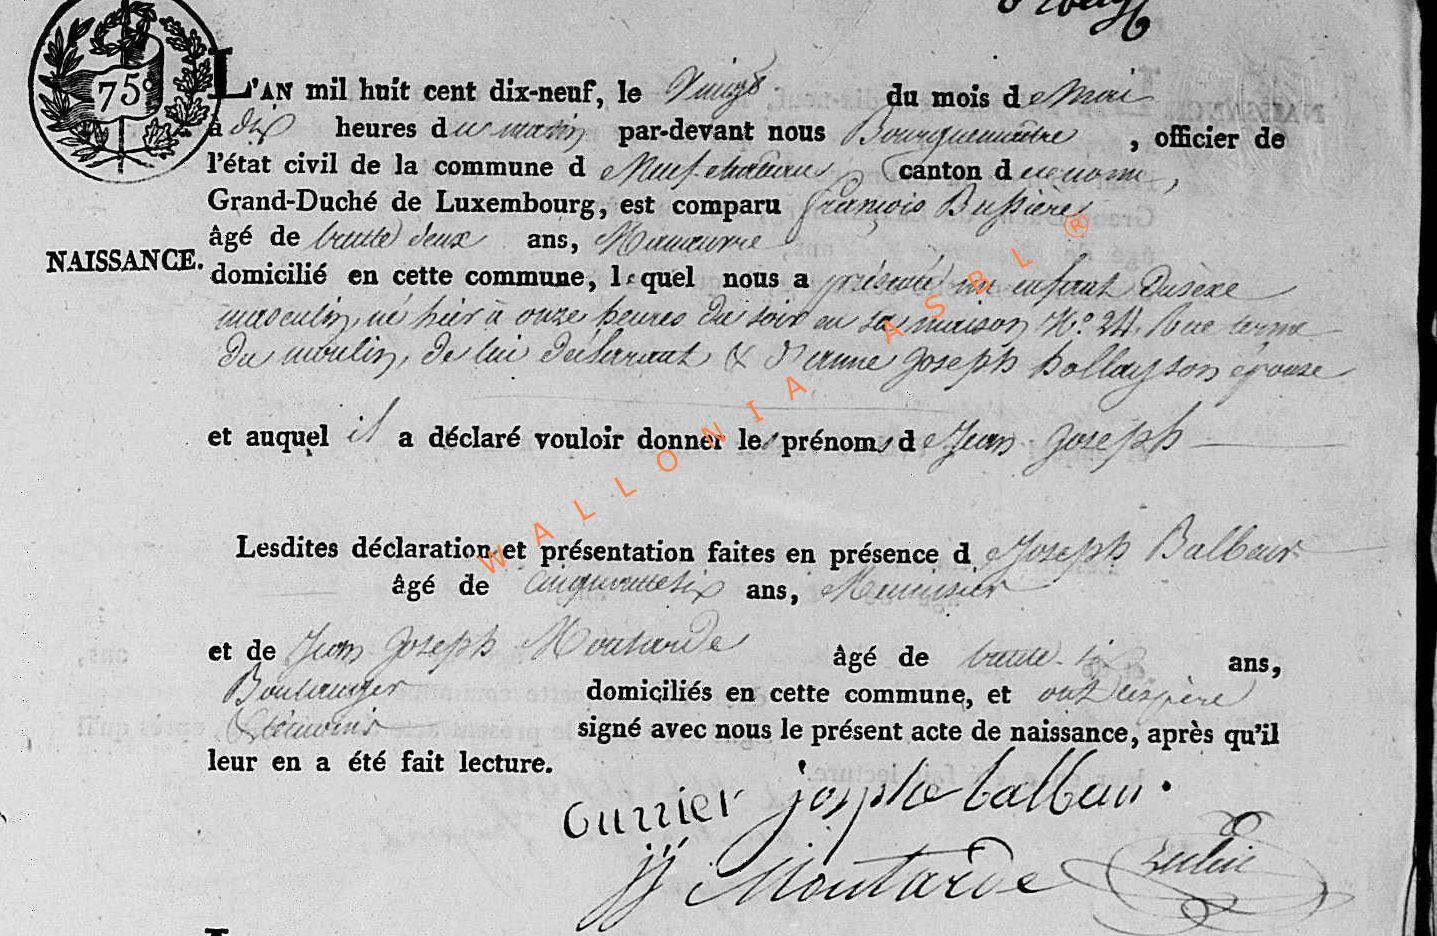 75c
L'AN mil huit cent dix-neuf, le Vingt du mois de Mai
à dix heures du matin par-devant nous Bourguemaître, officier de
l'état civil de la commune de Neufchateau canton du
Grand-Duché de Luxembourg, est comparu françois Bussière
NAISSANCE.
âgé de trente deux ans, Manœuvre
domicilié en cette commune, lequel nous a présenté un enfant du sexe
masculin, né hier à onze heures du soir en sa maison N.o 24. Rue terme
du moulin, de lui déclarant & d'anne joseph hollayson épouse
et auquel il a déclaré vouloir donner les prénoms de Jean joseph
Lesdites déclaration et présentation faites en présence de Joseph Balbeur
âgé de cinquante six ans, Menuisier
et de Jean Joseph Moutarde âgé de trente-six ans,
Boulanger domiciliés en cette commune, et ont le père
& témoins signé avec nous le présent acte de naissance, après qu'il
leur en a été fait lecture.
josphe balbeur.
jj Moutarde
WALLONIA ASBL ®